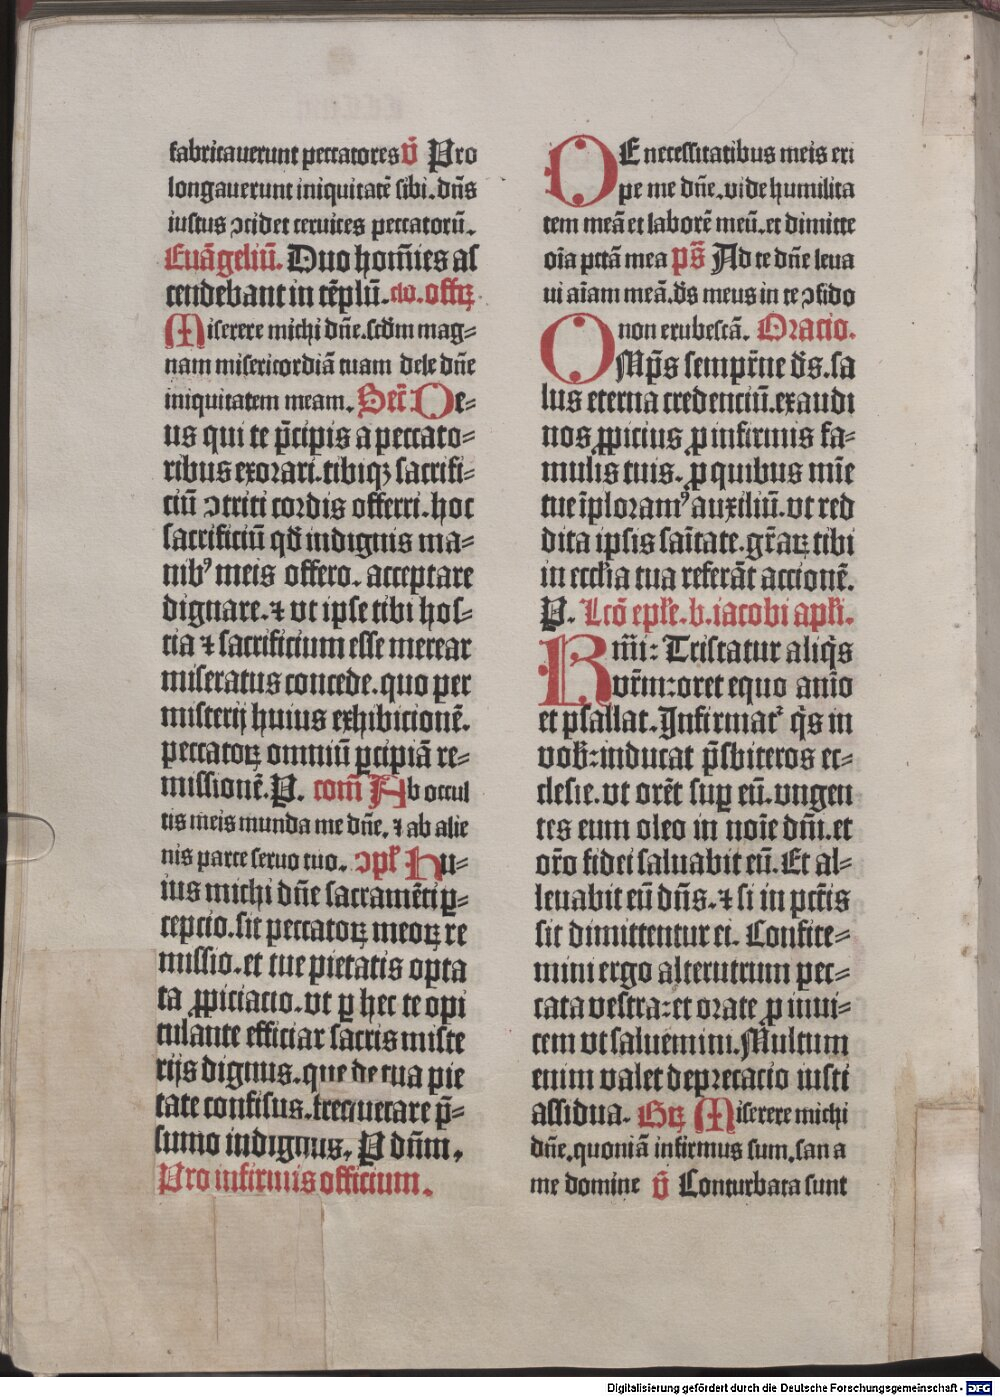 fabricauerunt peccatores v̄ Pro
longauerunt iniquitatē sibi. dn̄s
iustus ↄcidet ceruices peccatorū.
Euāgeliū. Duo hom̄ies as
cendebant in tēplū. do. offꝝ
Miserere michi dn̄e. scd̄m mag⸗
nam misericordiā tuam dele dn̄e
iniquitatem meam. Secr̄ De⸗
us qui te p̄cipis a peccato⸗
ribus exorari. tibiqꝫ sacrifi⸗
ciū ↄtriti cordis offerri. hoc
sacrificiū qd̄ indignis ma⸗
nibꝰ meis offero. acceptare
dignare. ⁊ vt ipse tibi hos⸗
tia ⁊ sacrificium esse merear
miseratus concede. quo per
misterij huius exhibicionē.
peccatoꝝ omniū ꝑcipiā re⸗
missionē. P. com̄ Ab occul
tis meis munda me dn̄e. ⁊ ab alie
nis parce seruo tuo. ↄpl̄ Hu⸗
ius michi dn̄e sacramēti ꝑ⸗
cepcio. sit peccatoꝝ meoꝝ re
missio. et tue pietatis opta
ta ꝓpiciacio. vt ꝑ hec te opi
tulante efficiar sacris miste
rijs dignus. que de tua pie
tate confisus. frecuetare p̄⸗
sumo indignus. P dn̄m.
Pro infirmis officium.
DE necessitatibus meis eri
pe me dn̄e. vide humilita
tem meā et laborē meū. et dimitte
oīa pctā mea ps̄ Ad te dn̄e leua
ui aīam meā. ds̄ meus in te ↄfido
non erubescā. Oracio.
OMp̄s sempr̄ne ds̄. sa
lus eterna credenciū. exaudi
nos ꝓpicius ꝓ infirmis fa⸗
mulis tuis. ꝓ quibus mīe
tue īploramꝰ auxiliū. vt red
dita ipsis saītate. gr̄aꝝ tibi
in eccl̄ia tua referāt accionē.
P. Lcō epl̄e. b. iacobi apl̄i.
Krm̄i: Tristatur aliq̄s
vr̄m: oret equo anīo
et psallat. Infirmat᷒ q̄s in
vob̄: inducat p̄sbiteros ec⸗
clesie. vt orēt suꝑ eū. vngen
tes eum oleo in noīe dn̄i. et
or̄o fidei saluabit eū. Et al⸗
leuabit eū dn̄s. ⁊ si in pctīs
sit dimittentur ei. Confite⸗
mini ergo alterutrum pec⸗
cata vestra: et orate ꝓ inui⸗
cem vt saluemini. Multum
enim valet deprecacio iusti
assidua. Gꝝ Miserere michi
dn̄e. quoniā infirmus sum. san a
me domine v̄ Conturbata sunt
Digitalisierung gefördert durch die Deutsche Forschungsgemeinschaft - DFG